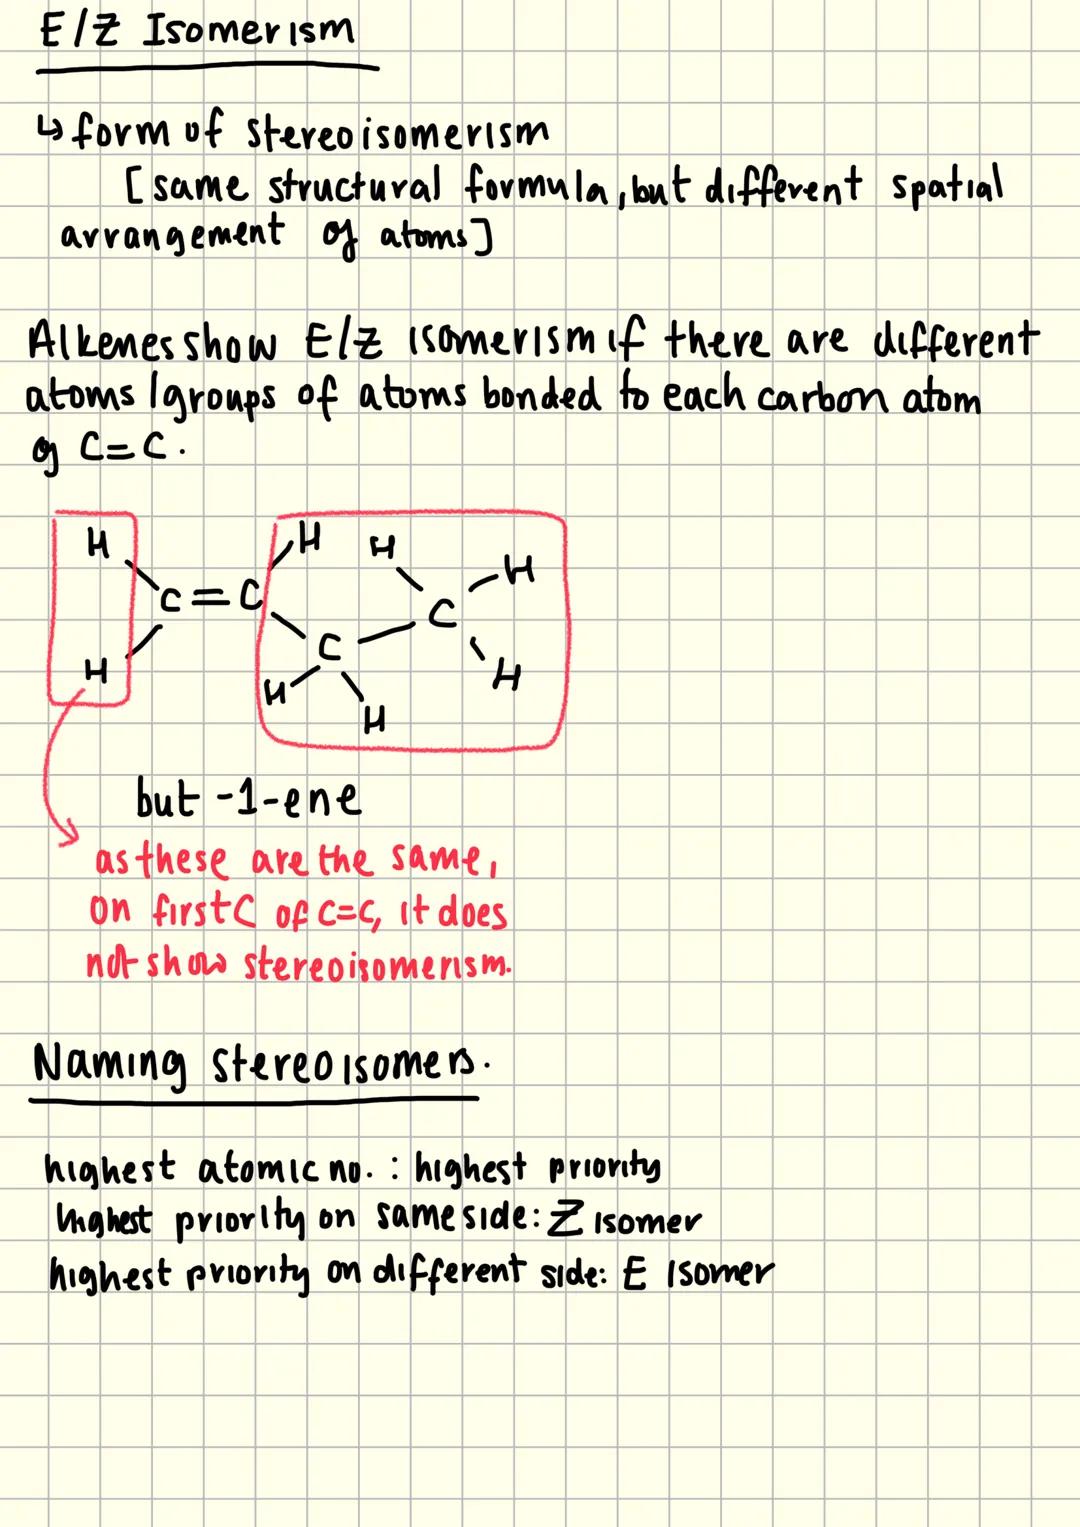 E/Z Isomerism
↳ form of stereoisomerism
[same structural formula, but different spatial
arrangement of atoms]
Alkenes show E/Z isomerism if there are different
atoms /groups of atoms bonded to each carbon atom
of C=C.
H H H H
C=C C
C
H H H
H
but -1-ene
as these are the same,
on first C of C=C, it does
not show stereoisomerism.
Naming stereoisomers.
highest atomic no. : highest priority
highest priority on same side: Z isomer
highest priority on different side: E isomer